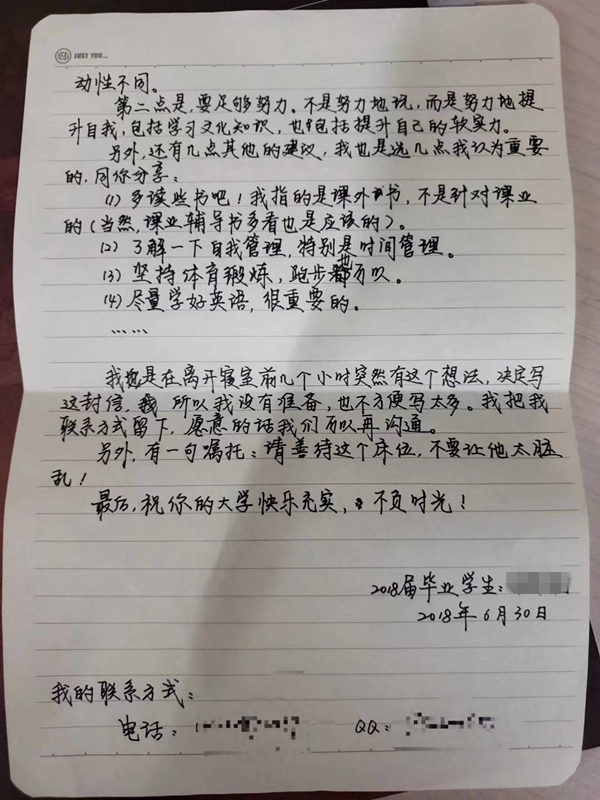 JUST YOU...
动性不同。
第二点是，要足够努力。不是努力地玩，而是努力地提
升自我，包括学习文化知识，也包括提升自己的软实力。
另外，还有几点其他的建议，我也是选几点我认为重要
的，同你分享：
(1) 多读些书吧！我指的是课外书，不是针对课业
的（当然，课业辅导书多看也是应该的）。
(2) 了解一下自我管理，特别是时间管理。
(3) 坚持体育锻炼，跑步也可以。
(4) 尽量学好英语，很重要的。
……
我也是在离开寝室前几个小时突然有这个想法，决定写
这封信，所以我没有准备，也不方便写太多。我把我
联系方式留下，愿意的话我们可以再沟通。
另外，有一句嘱托：请善待这个床位，不要让他太脏
乱！
最后，祝你的大学快乐充实，不负时光！
2018届毕业学生：
2018年6月30日
我的联系方式：
电话： QQ：